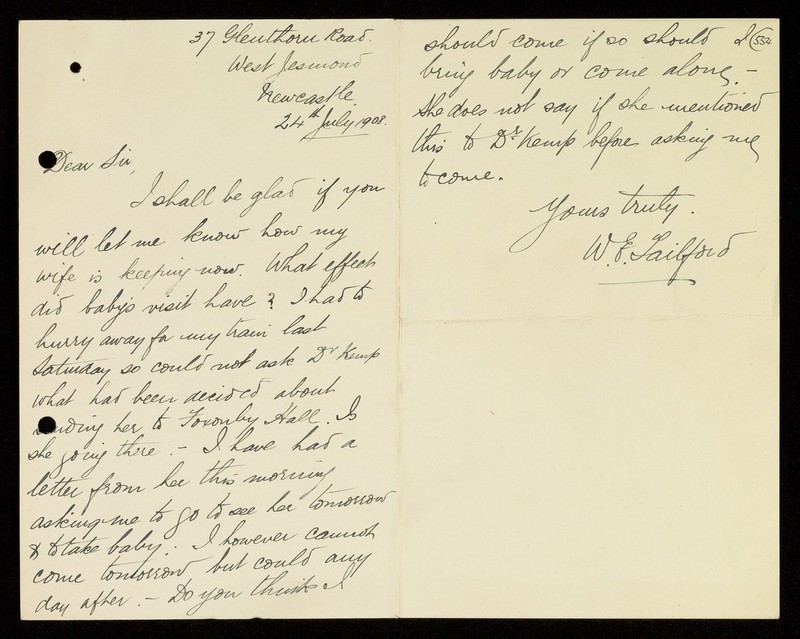 37 Glenthorn Road.
West Jesmond
Newcastle.
24th July 1908.
Dear Sir,
I shall be glad if you
will let me know how my
wife is keeping now. What effect
did baby's visit have? I had to
hurry away for my train last
Saturday so could not ask Dr Kemp
what had been decided about
sending her to Hall. Is
she going there :- I have had a
letter from her this morning
asking me to go to see her tomorrow
& to take baby :- I however cannot
come tomorrow but could any
day after :- Do you think I
should come if so should I
554
bring baby or come alone. -
She does not say if she mentioned
this to Dr. Kemp before asking me
to come.
Yours truly.
W. E. Tailford